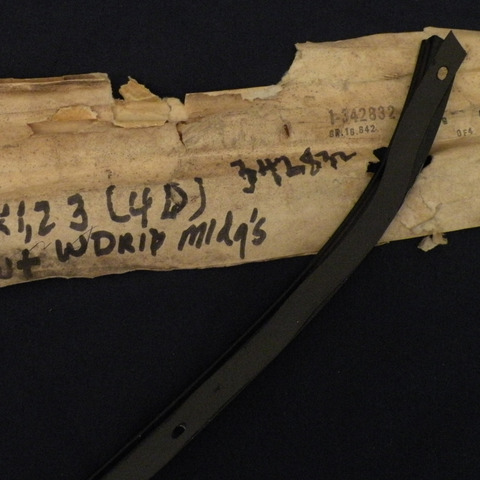 1-342832
GR.16.842
342832
1,2 3 (4D)
WDRIP Mldg's